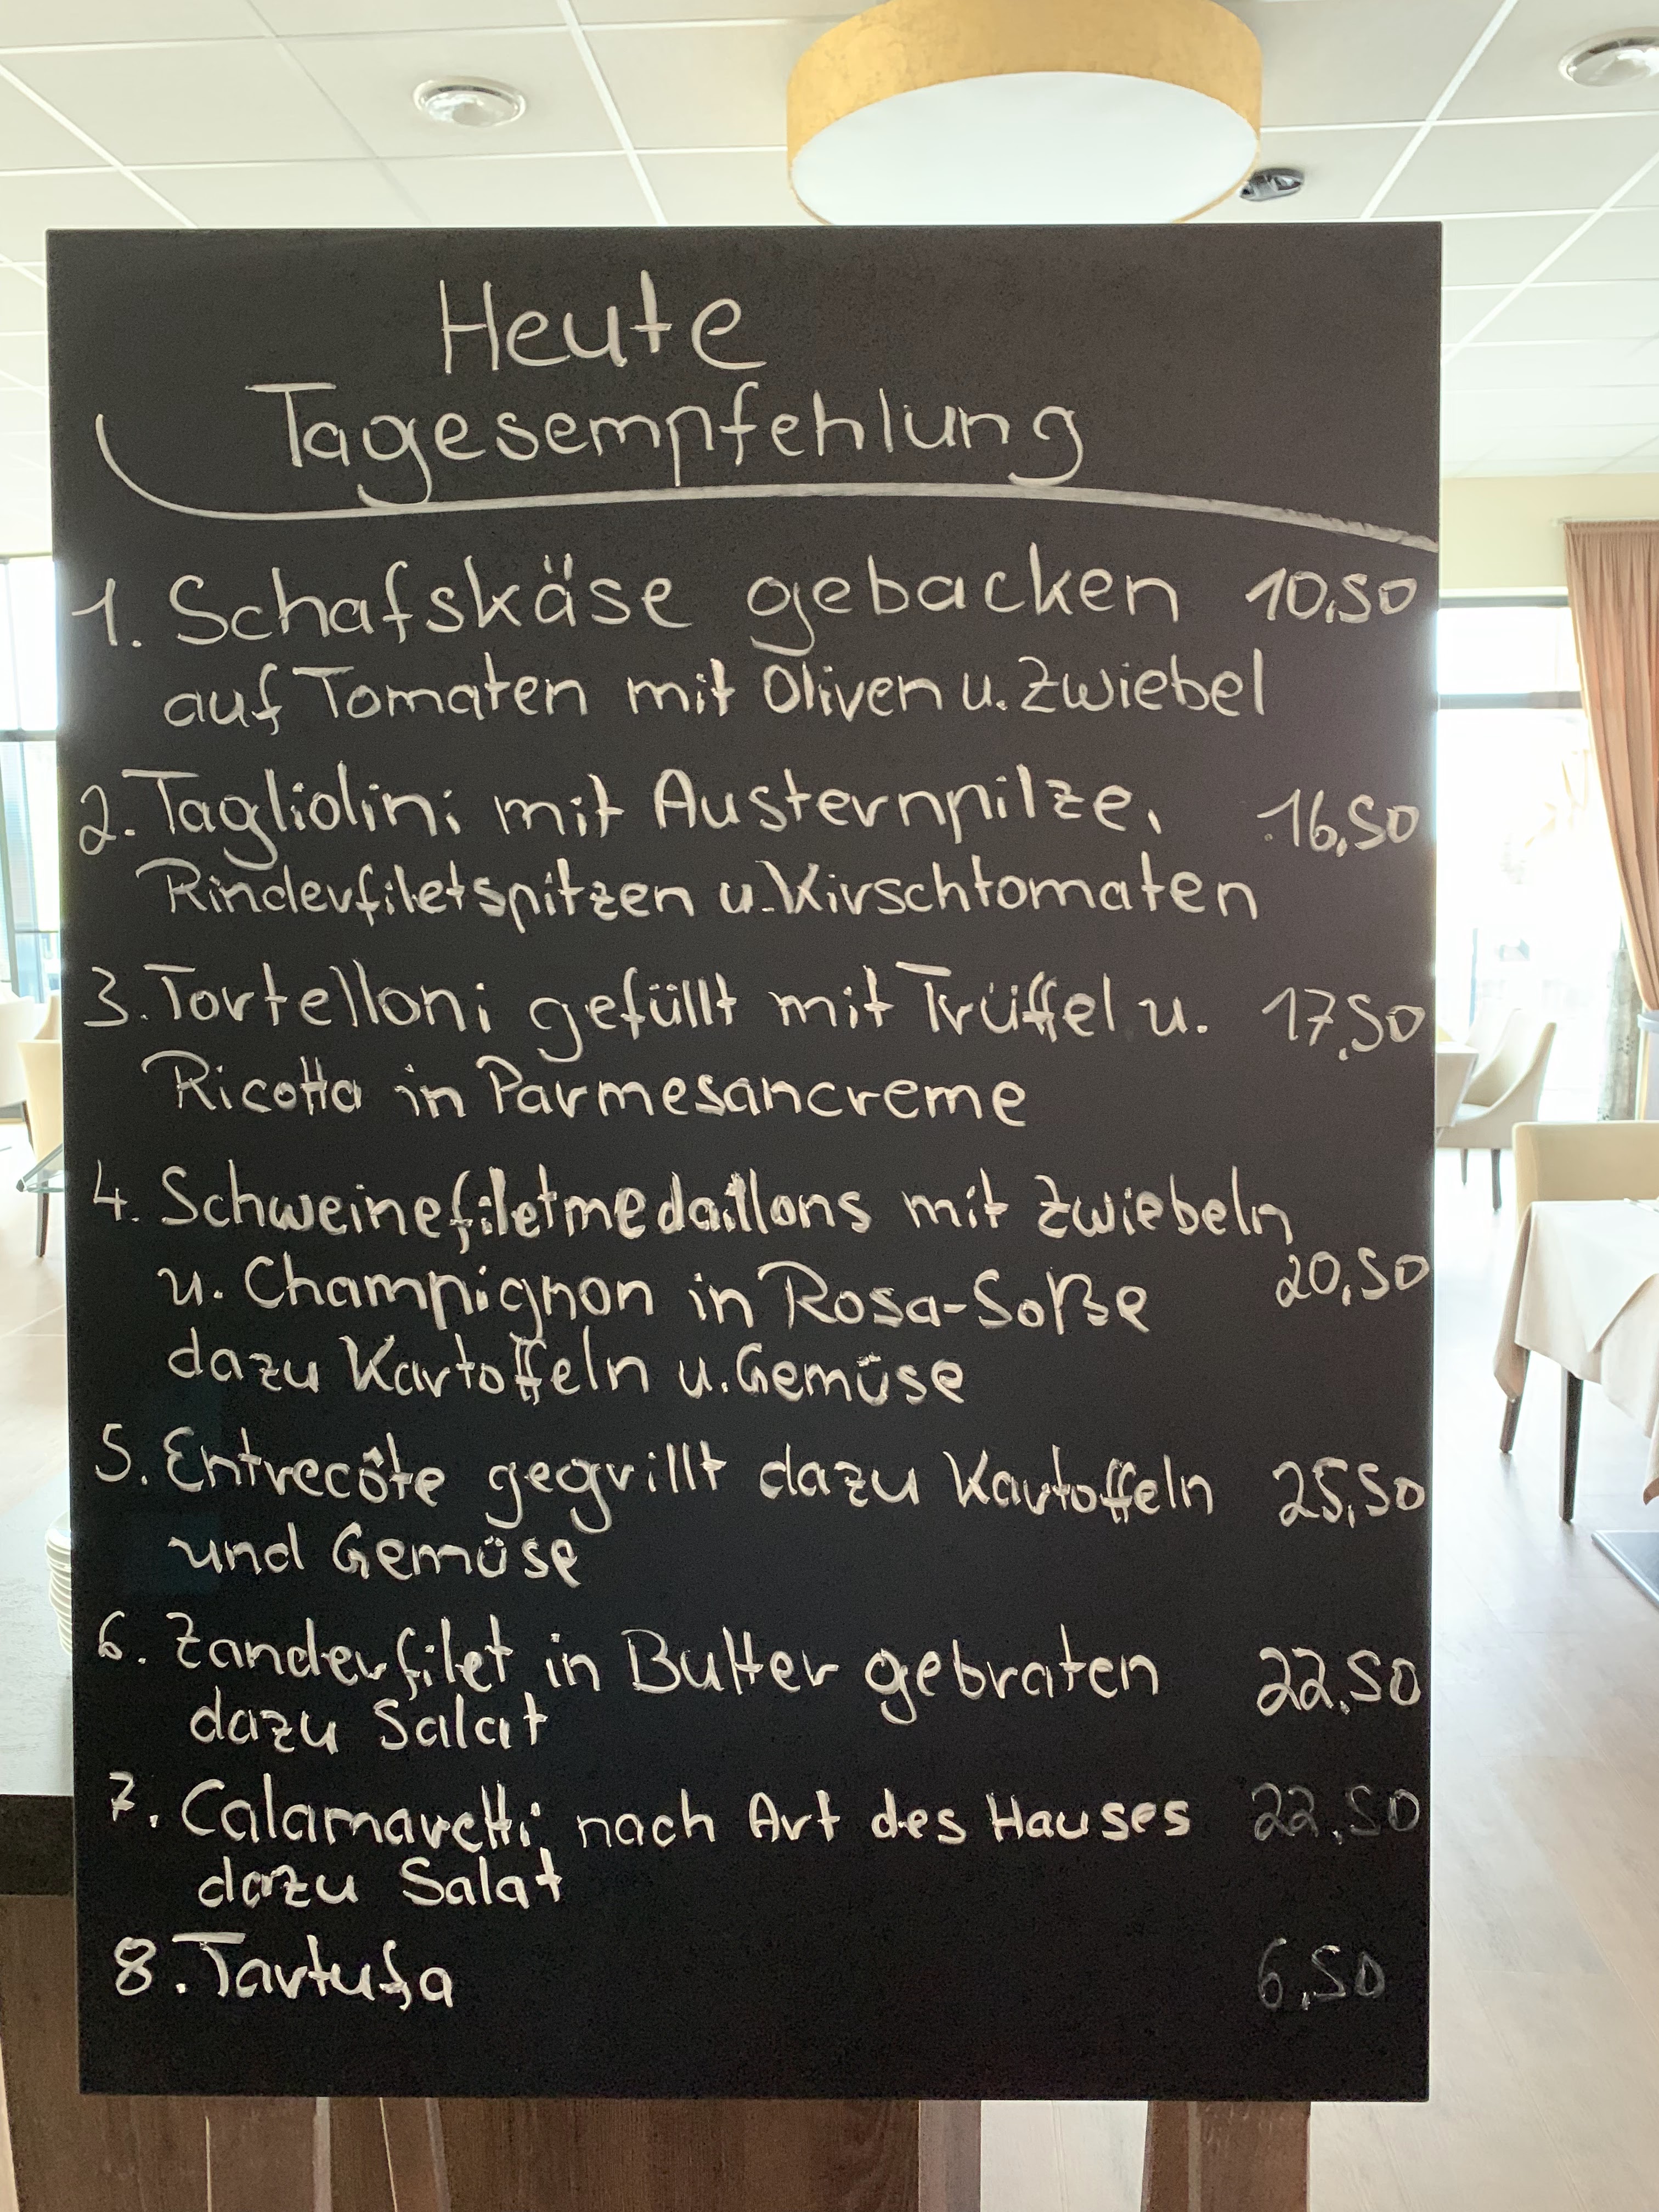 Heute
Tagesempfehlung
1. Schafskäse gebacken 10,50
auf Tomaten mit Oliven u. Zwiebel
2. Tagliolini mit Austernpilze, 16,50
Rinderfiletspitzen u. Kirschtomaten
3. Tortelloni gefüllt mit Trüffel u. 17,50
Ricotta in Parmesancreme
4. Schweinefiletmedaillons mit Zwiebeln
u. Champignon in Rosa-Soße 20,50
dazu Kartoffeln u. Gemüse
5. Entrecôte gegrillt dazu Kartoffeln 25,50
und Gemüse
6. Zanderfilet in Butter gebraten 22,50
dazu Salat
7. Calamaretti nach Art des Hauses 22,50
dazu Salat
8. Tartufo 6,50